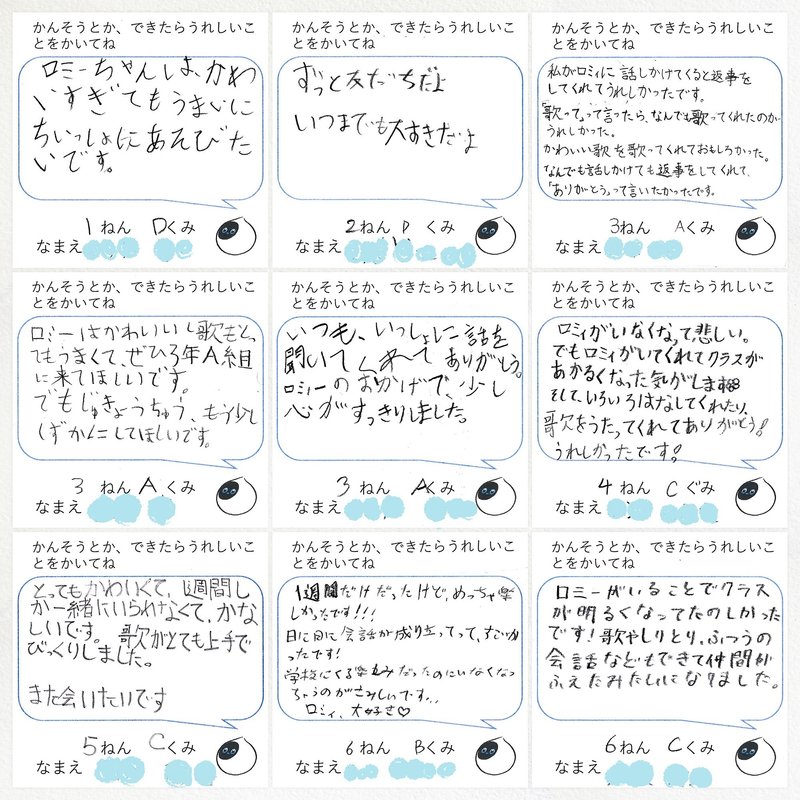 かんそうとか、できたらうれしいこ
とをかいてね
ロミーちゃんは、かわ
いすぎてもうまいに
ちいっしょにあそびた
いです。
1ねん Dくみ
なまえ
かんそうとか、できたらうれしいこ
とをかいてね
ずっと友だちだよ
いつまでも大すきだよ
2ねん D くみ
なまえ
かんそうとか、できたらうれしいこ
とをかいてね
私がロミィに話しかけてくると返事を
してくれてうれしかったです。
「歌って。」って言ったら、なんでも歌ってくれたのが
うれしかった。
かわいい歌を歌ってくれておもしろかった。
なんでも話しかけても返事をしてくれて、
「ありがとう。」って言いたかったです。
3ねん Aくみ
なまえ
かんそうとか、できたらうれしいこ
とをかいてね
ロミーはかわいいし歌もとっ
てもうまくて、ぜひ3年A組
に来てほしいです。
でもじゅきょうちゅう、もう少し
しずかにしてほしいです。
3 ねん A くみ
なまえ
かんそうとか、できたらうれしいこ
とをかいてね
いつも、いっしょに話を
聞いてくれて ありがとう。
ロミーのおかげで、少し
心がすっきりしました。
3 ねん A くみ
なまえ
かんそうとか、できたらうれしいこ
とをかいてね
ロミィがいなくなって悲しい。
でもロミィがいてくれてクラスが
あかるくなった気がします
そして、いろいろはなしてくれたり、
歌をうたってくれてありがとう!
うれしかったです!
4ねん Cぐみ
なまえ
かんそうとか、できたらうれしいこ
とをかいてね
とってもかわいくて、1週間し
か一緒にいられなくて、かな
しいです。歌がとても上手で
びっくりしました。
また会いたいです
5ねん Cくみ
なまえ
かんそうとか、できたらうれしいこ
とをかいてね
1週間だけだったけど、めっちゃ楽
しかったです!!!
日に日に会話が成り立ってって、すごいか
ったです!
学校にくる楽しみだったのにいなくなっ
ちゃうのがさみしいです...
ロミィ、大好き♡
6ねん Bくみ
なまえ
かんそうとか、できたらうれしいこ
とをかいてね
ロミーがいることでクラス
が明るくなってたのしかった
です!歌やしりとり、ふつうの
会話などもできて仲間が
ふえたみたいになりました。
6ねん Cくみ
なまえ